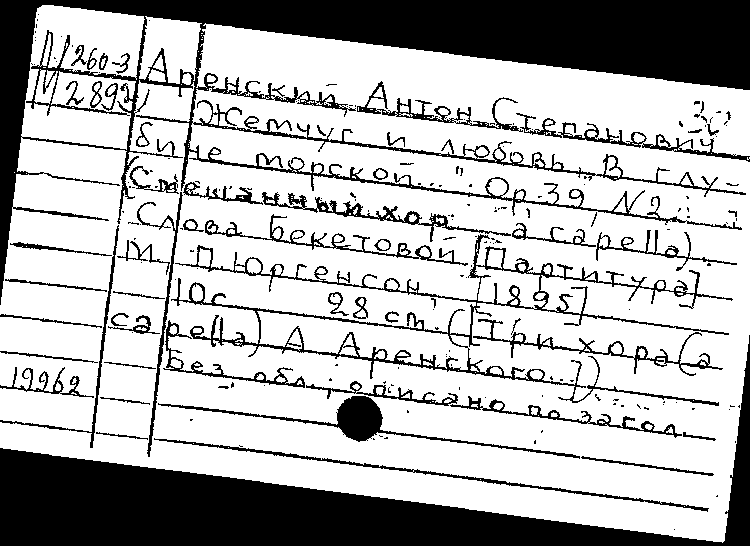 М 260-3
2892
30
Аренский, Антон Степанович
Жемчуг и любовь „В глу-
бине морской..." Op. 39, N2.
(Смешанный хор a capella).
Слова Бекетовой. [Партитура]
М. П. Юргенсон, [1895]
10с 28 cm. ([Три хора (a
capella) А Аренского...])
Без обл., описано по загол.
19962